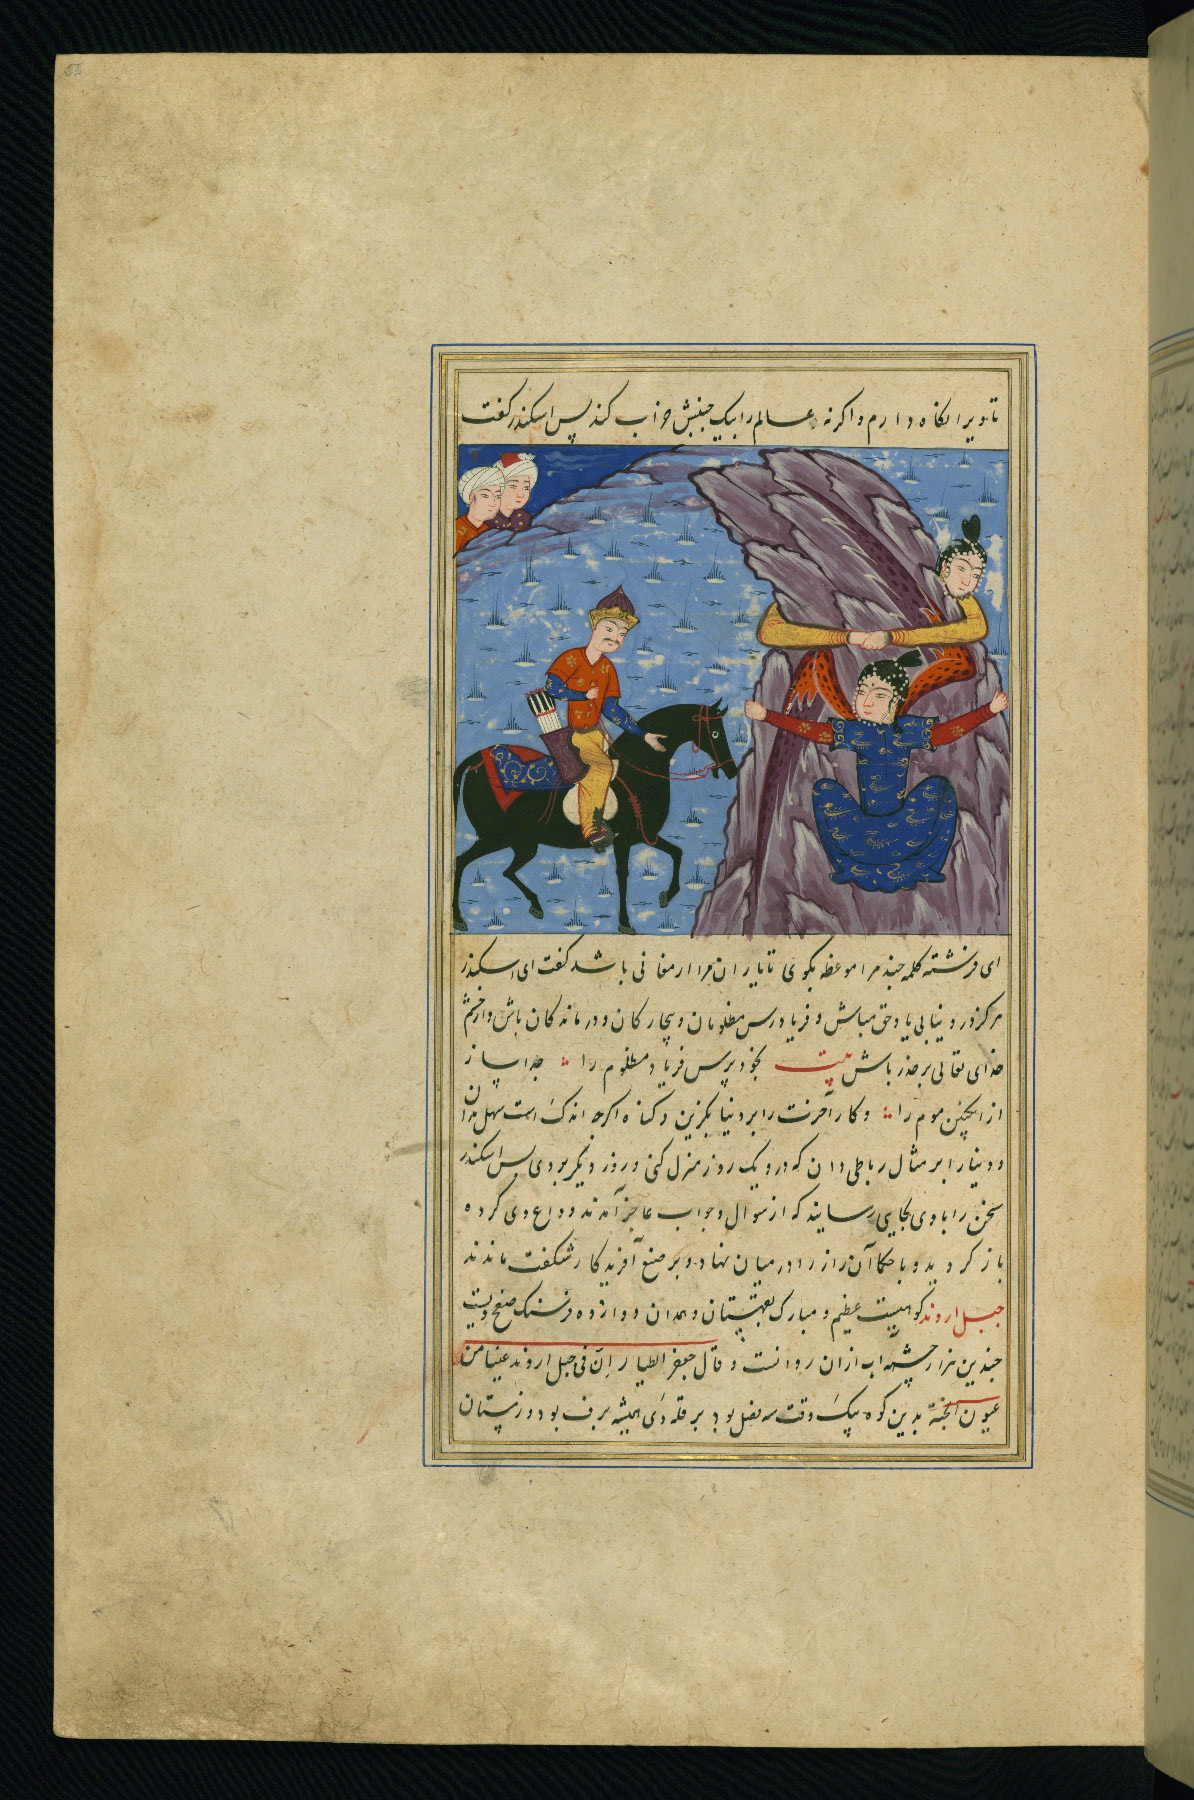 52
تا ویرا نکاه دارم و اکرنه عالم را بیک جنبش خراب کند پس اسکندر کفت
ای فرشته کلمه چند مرا موعظه بکوی تا یاران مرا ارمغانی باشد کفت ای اسکندر
هرکز در دنیا بی یاد حق مباش و فریادرس مظلومان و بیچارکان و درماندکان باش و از خشم
خدای تعالی بر حذر باش بیت بخود پرس فریاد مظلوم را جدا ساز
از انکبین موم را و کار آخرت را بر دنیا بکزین و کناه اکرچه اندک است سهل مدان
و دنیا را بر مثال رباطی دان که درو یک روز منزل کنی و روز دیکر بودی پس اسکندر
سخن را با وی بجایی رسانید که از سوال و جواب عاجز آمدند و وداع وی کرده
باز کردید و با حکما آن راز را در میان نهاد و بر صنع آفریدکار شکفت ماندند
جبل اروند کوهیست عظیم و مبارک بقهستان و همدان دوازده فرسنک
چندین هزار چشمه آب ازان روانست و قال جعفر الطیار ان فی جبل اروند عینا من
عیون الجنة بدین کوه بیک وقت بود بر قله وی همیشه برف بود و زمستان